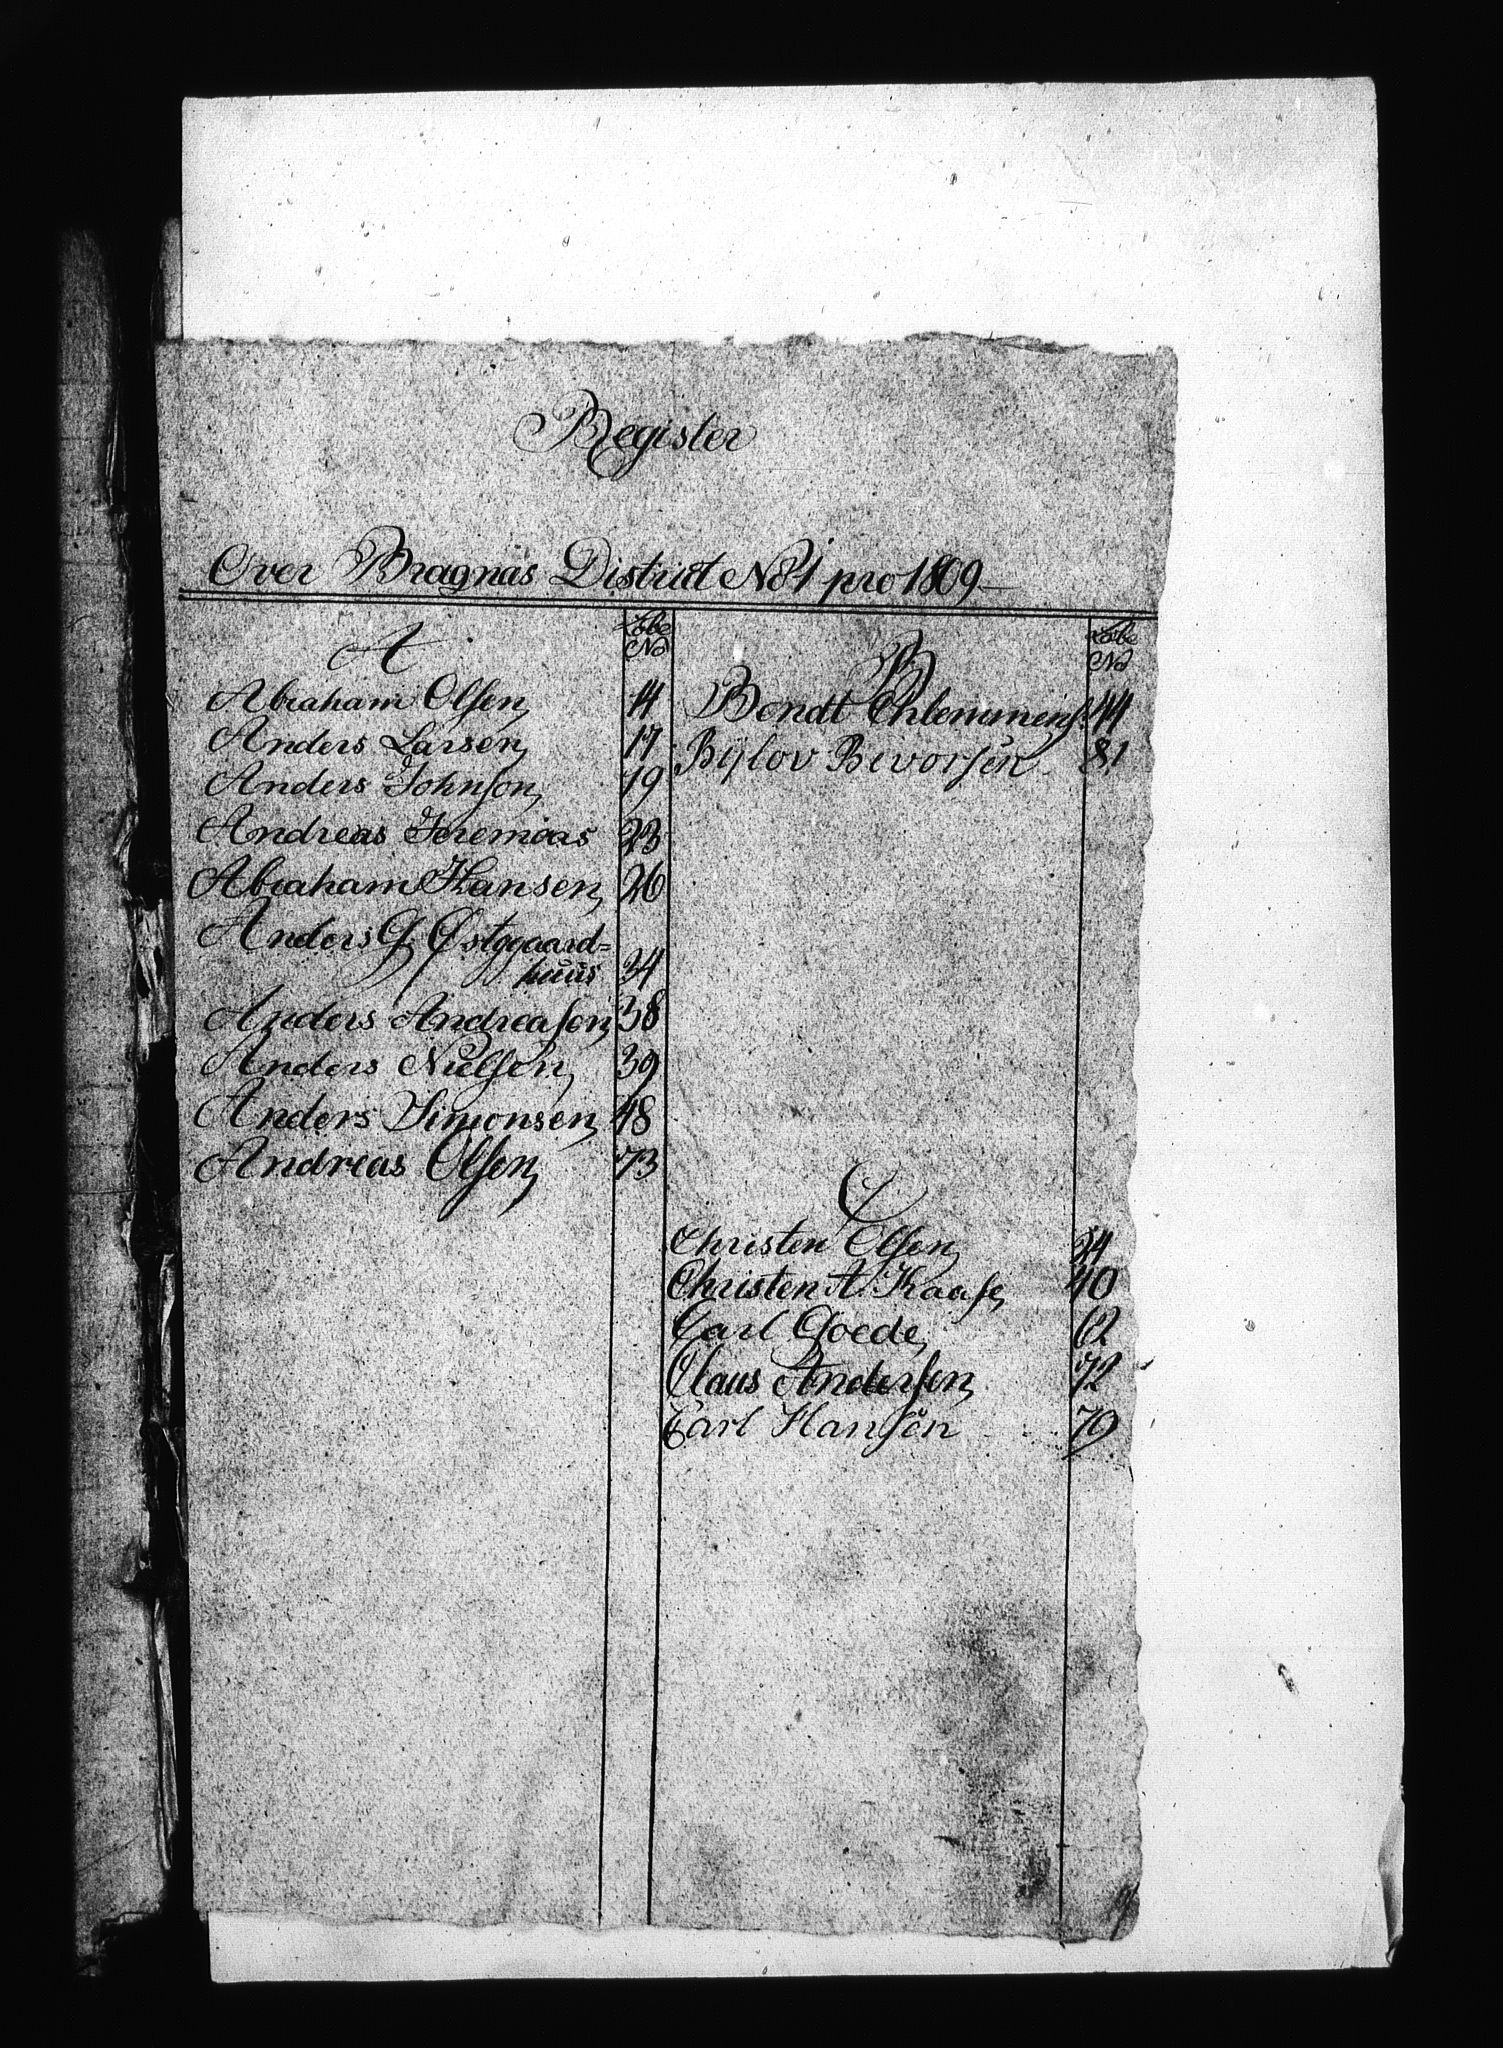 Register
Over Bragnäs District No 1 pro 1809
A
Løbe
No
Abraham Olsen 14
Anders Larsen 17
Anders Johnsen 19
Andreas Jeremias 23
Abraham Hansen 26
Anders G Østggaard=
huus 34
Anders Andreasen 38
Anders Nielsen 39
Anders Simonsen 48
Andreas Olsen 73
B
Løbe
No
Bendt 44
Bÿlov Bevorsen 81
C
Christen Olsen 24
Christen A. Kaase 40
Carl Goede 62
Claus Andersen 72
Carl Hansen 79